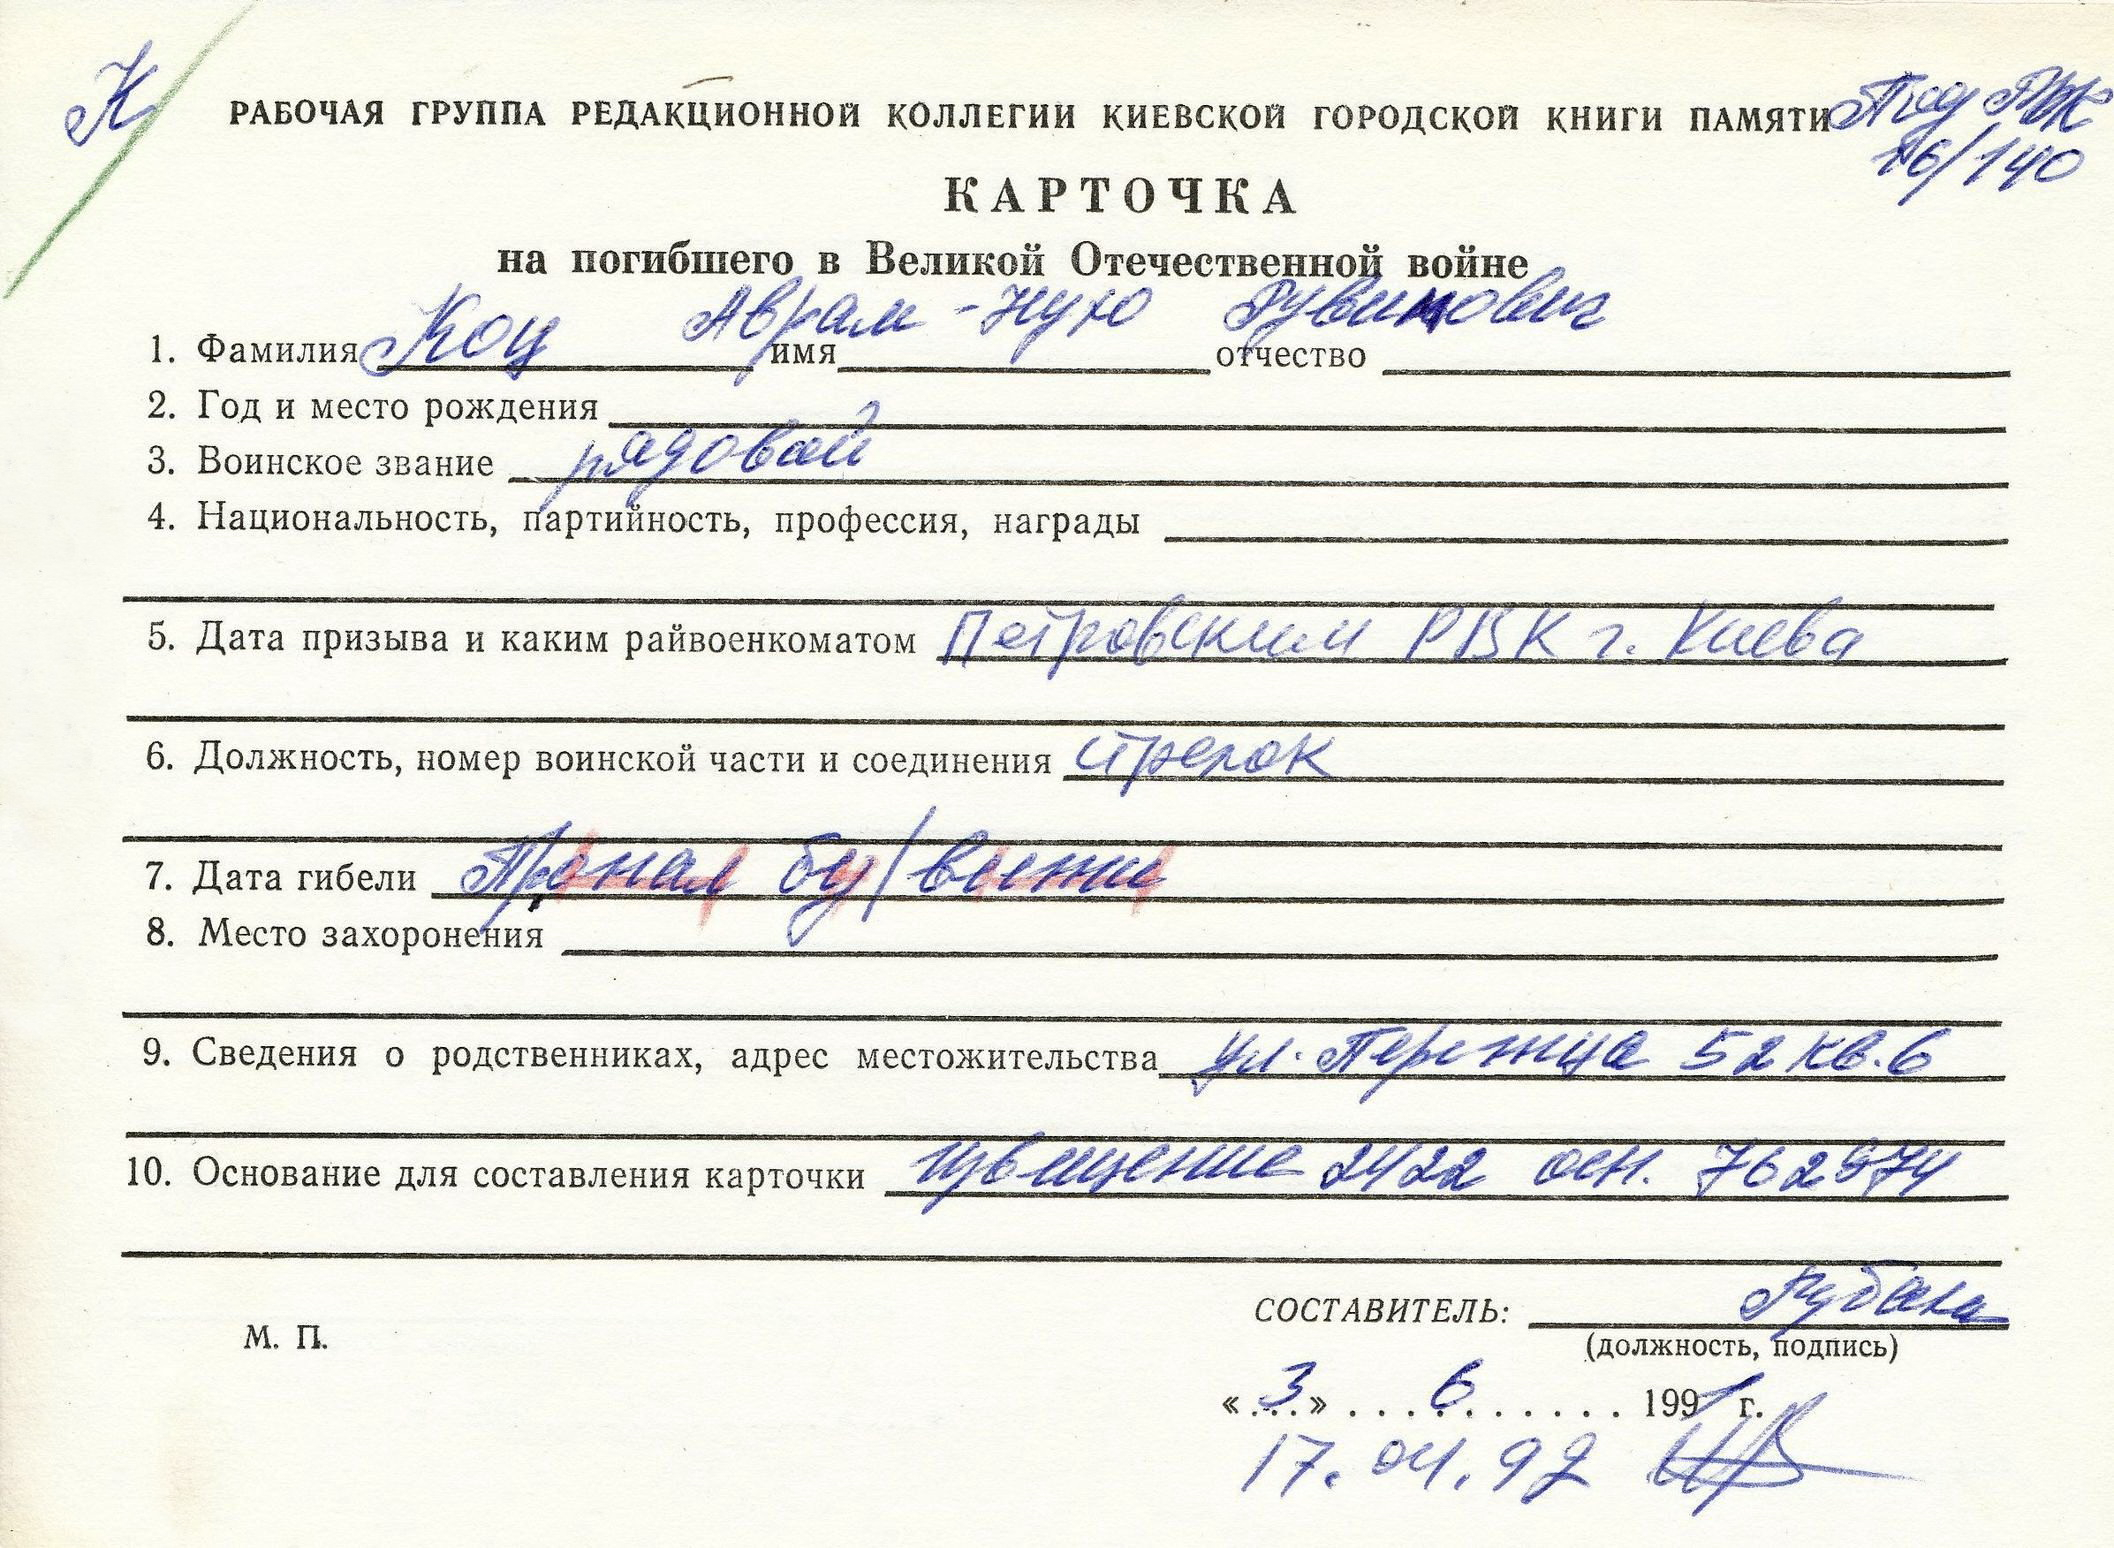 К
РАБОЧАЯ ГРУППА РЕДАКЦИОННОЙ КОЛЛЕГИИ КИЕВСКОЙ ГОРОДСКОЙ КНИГИ ПАМЯТИ
16/140
КАРТОЧКА
на погибшего в Великой Отечественной войне
1. Фамилия Коц имя Аврам- отчество Рувинович
2. Год и место рождения
3. Воинское звание рядовой
4. Национальность, партийность, профессия, награды
5. Дата призыва и каким райвоенкоматом Петровским РВК г. Киева
6. Должность, номер воинской части и соединения стрелок
7. Дата гибели Пропал б/вести
8. Место захоронения
9. Сведения о родственниках, адрес местожительства ул. 52 кв. 6
10. Основание для составления карточки извещение 2422 осн. 762974
СОСТАВИТЕЛЬ:
М. П.
(должность, подпись)
«3» 6 1991 г.
17.04.92